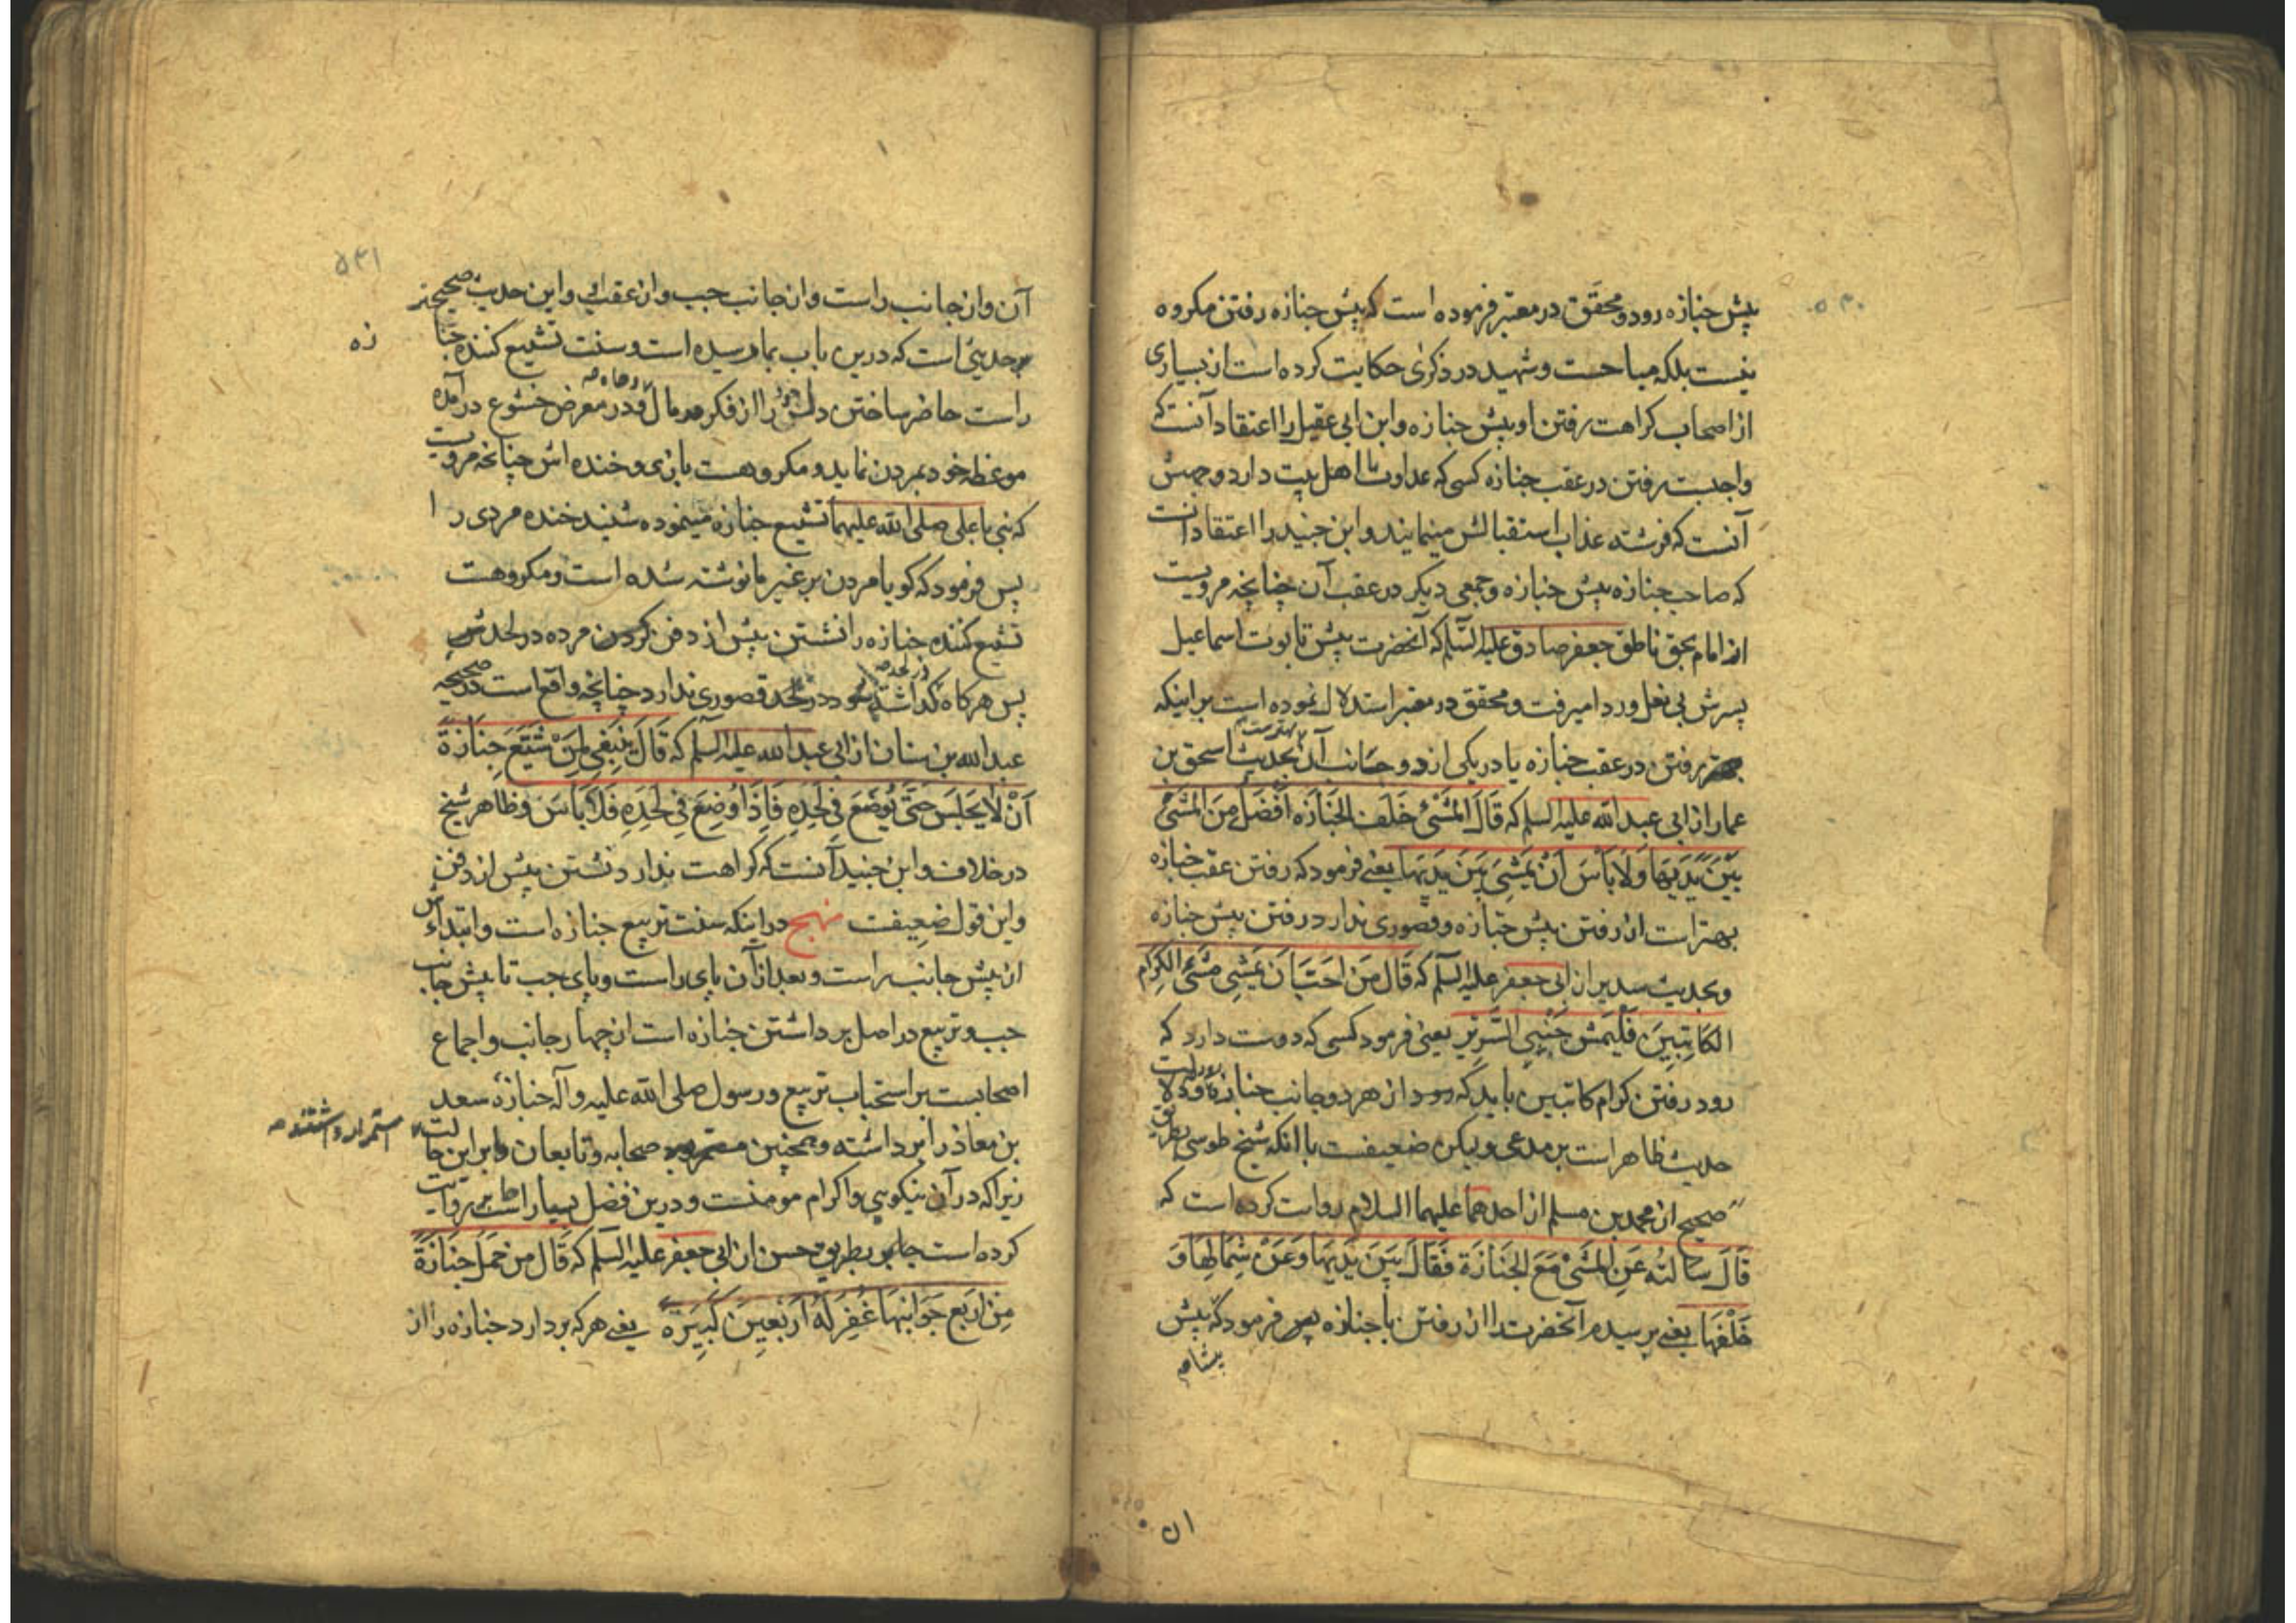 ۵۴۰
پیش جنازه رود و محقق در معتبر فرموده است که پیش جنازه رفتن مکروه
نیست بلکه مباحست و شهید در ذکری حکایت کرده است از بسیاری
از اصحاب کراهت رفتن او پیش جنازه و ابن ابی عقیل را اعتقاد آنست که
واجبست رفتن در عقب جنازه کسی که عداوت با اهل بیت دارد و جهتش
آنست که فرشته عذاب استقبالش مینمایند و ابن جنید را اعتقاد آنست
که صاحب جنازه پیش جنازه و جمعی دیکر در عقب آن چنانچه مرویست
از امام بحق ناطق جعفر صادق علیه السّلم که آنحضرت پیش تابوت اسماعیل
پسرش بی نعل و ردا میرفت و محقق در معتبر استدلال نموده است بر اینکه
رفتن در عقب جنازه یا در یکی از دو جانب آن بهترست بحدیث اسحق بن
عمار از ابی عبد الله علیه السلم که قَالَ المَشْیُ خَلْفَ الجَنَازَه اَفْضَلُ مِنَ المَشْیِ
بَیْنَ یَدَیهَا وَلَا بَأْسَ اَنْ یَمْشِیَ بَینَ یَدَیهَا یعنی فرمود که رفتن عقب جنازه
بهتر است از رفتن پیش جنازه و قصوری ندارد رفتن پیش جنازه
و بحدیث سدیر از ابی جعفر علیه السلم که قَالَ مَن اَحَبَّ اَن یَمْشِی مَشْیَ الکِرَامِ
الکَاتِبِینَ فَلْیَمْشِ جَنْبِیِ السَّرِیْرِ یعنی فرمود کسی که دوست دارد که
رود رفتن کرام کاتبین باید که رود از هر دو جانب جنازه و دلالت
حدیث ظاهر است بر مدعی و لیکن ضعیفست با آنکه شیخ طوسی بطریق
صحیح از محمد بن مسلم از احدهما علیهما السلام روایت کرده است که
قَالَ سَالْتُه عَنِ المَشْیِ مَعَ الجَنَازَة فَقَالَ بَیْنَ یَدَیهَا وَعَنْ شِمَالِهَا وَ
خَلْفَهَا یعنی پرسیدم آنحضرت را از رفتن با جنازه پس فرمود که پیش
۵۴۱
آن و از جانب راست و از جانب چپ و از عقب او و این حدیث صحیحتر
حدیثی است که درین باب بما رسیده است و سنت تشییع کننده جنا
زه
راست حاضر ساختن دلش را از فکر مال و در معرض خشوع در آمده
موعظه خود بمردن نماید و مکروهست بازی و خنده اش چنانچه مرویست
که نبی یا علی صلی الله علیهما تشییع جنازه مینموده شنید خنده مردی را
پس فرمود که کویا مردن بر غیر ما نوشته شده است و مکروهست
تشییع کننده جنازه را نشستن پیش از دفن کردن مرده در لحدش
پس هرکاه کذاشته شود در لحد قصوری ندارد چنانچه واقع است در صحیحه
عبد الله بن سنان از ابی عبد الله علیه السلم که قَالَ یَنْبَغِی لِمَنْ شَیَّعَ جِنَازَةً
اَنْ لَا یَجلِسَ حَتَّی یُوضَعَ فِی لَحْدِهِ فَاِذَا وُضِعَ فِی لَحْدِهِ فَلَا بَأسَ و ظاهر شیخ
در خلاف و ابن جنید آنست که کراهت ندارد نشستن پیش از دفن
و این قول ضعیفست نهج در اینکه سنت تربیع جنازه است و ابتداءش
از پیش جانب راست و بعد از آن پای راست و پای چپ تا پیش جانب
چپ و تربیع در اصل برداشتن جنازه است از چهار جانب و اجماع
اصحابست بر استحباب تربیع و رسول صلی الله علیه و آله جنازه سعد
بن معاذ را برداشته و همچنین صحابه و تابعان بر این حالت
استمرار داشتند
زیرا که در آن نیکویی و اکرام مومنست و درین فضل بسیار است روایت
کرده است جابر بطریق حسن از ابی جعفر علیه السلم که قَالَ مَن حَمَلَ جَنَازَةً
مِنْ اَرْبَعِ جَوَانِبِهَا غُفِرَ لَهُ اَرْبَعِینَ کَبِیَرةً یعنی هر که بردارد جنازه را از